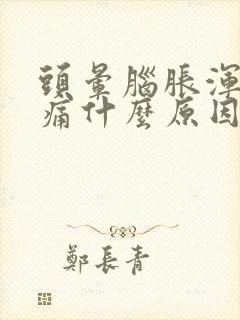 頭暈腦脹渾
痛什麼原因
鄭長青